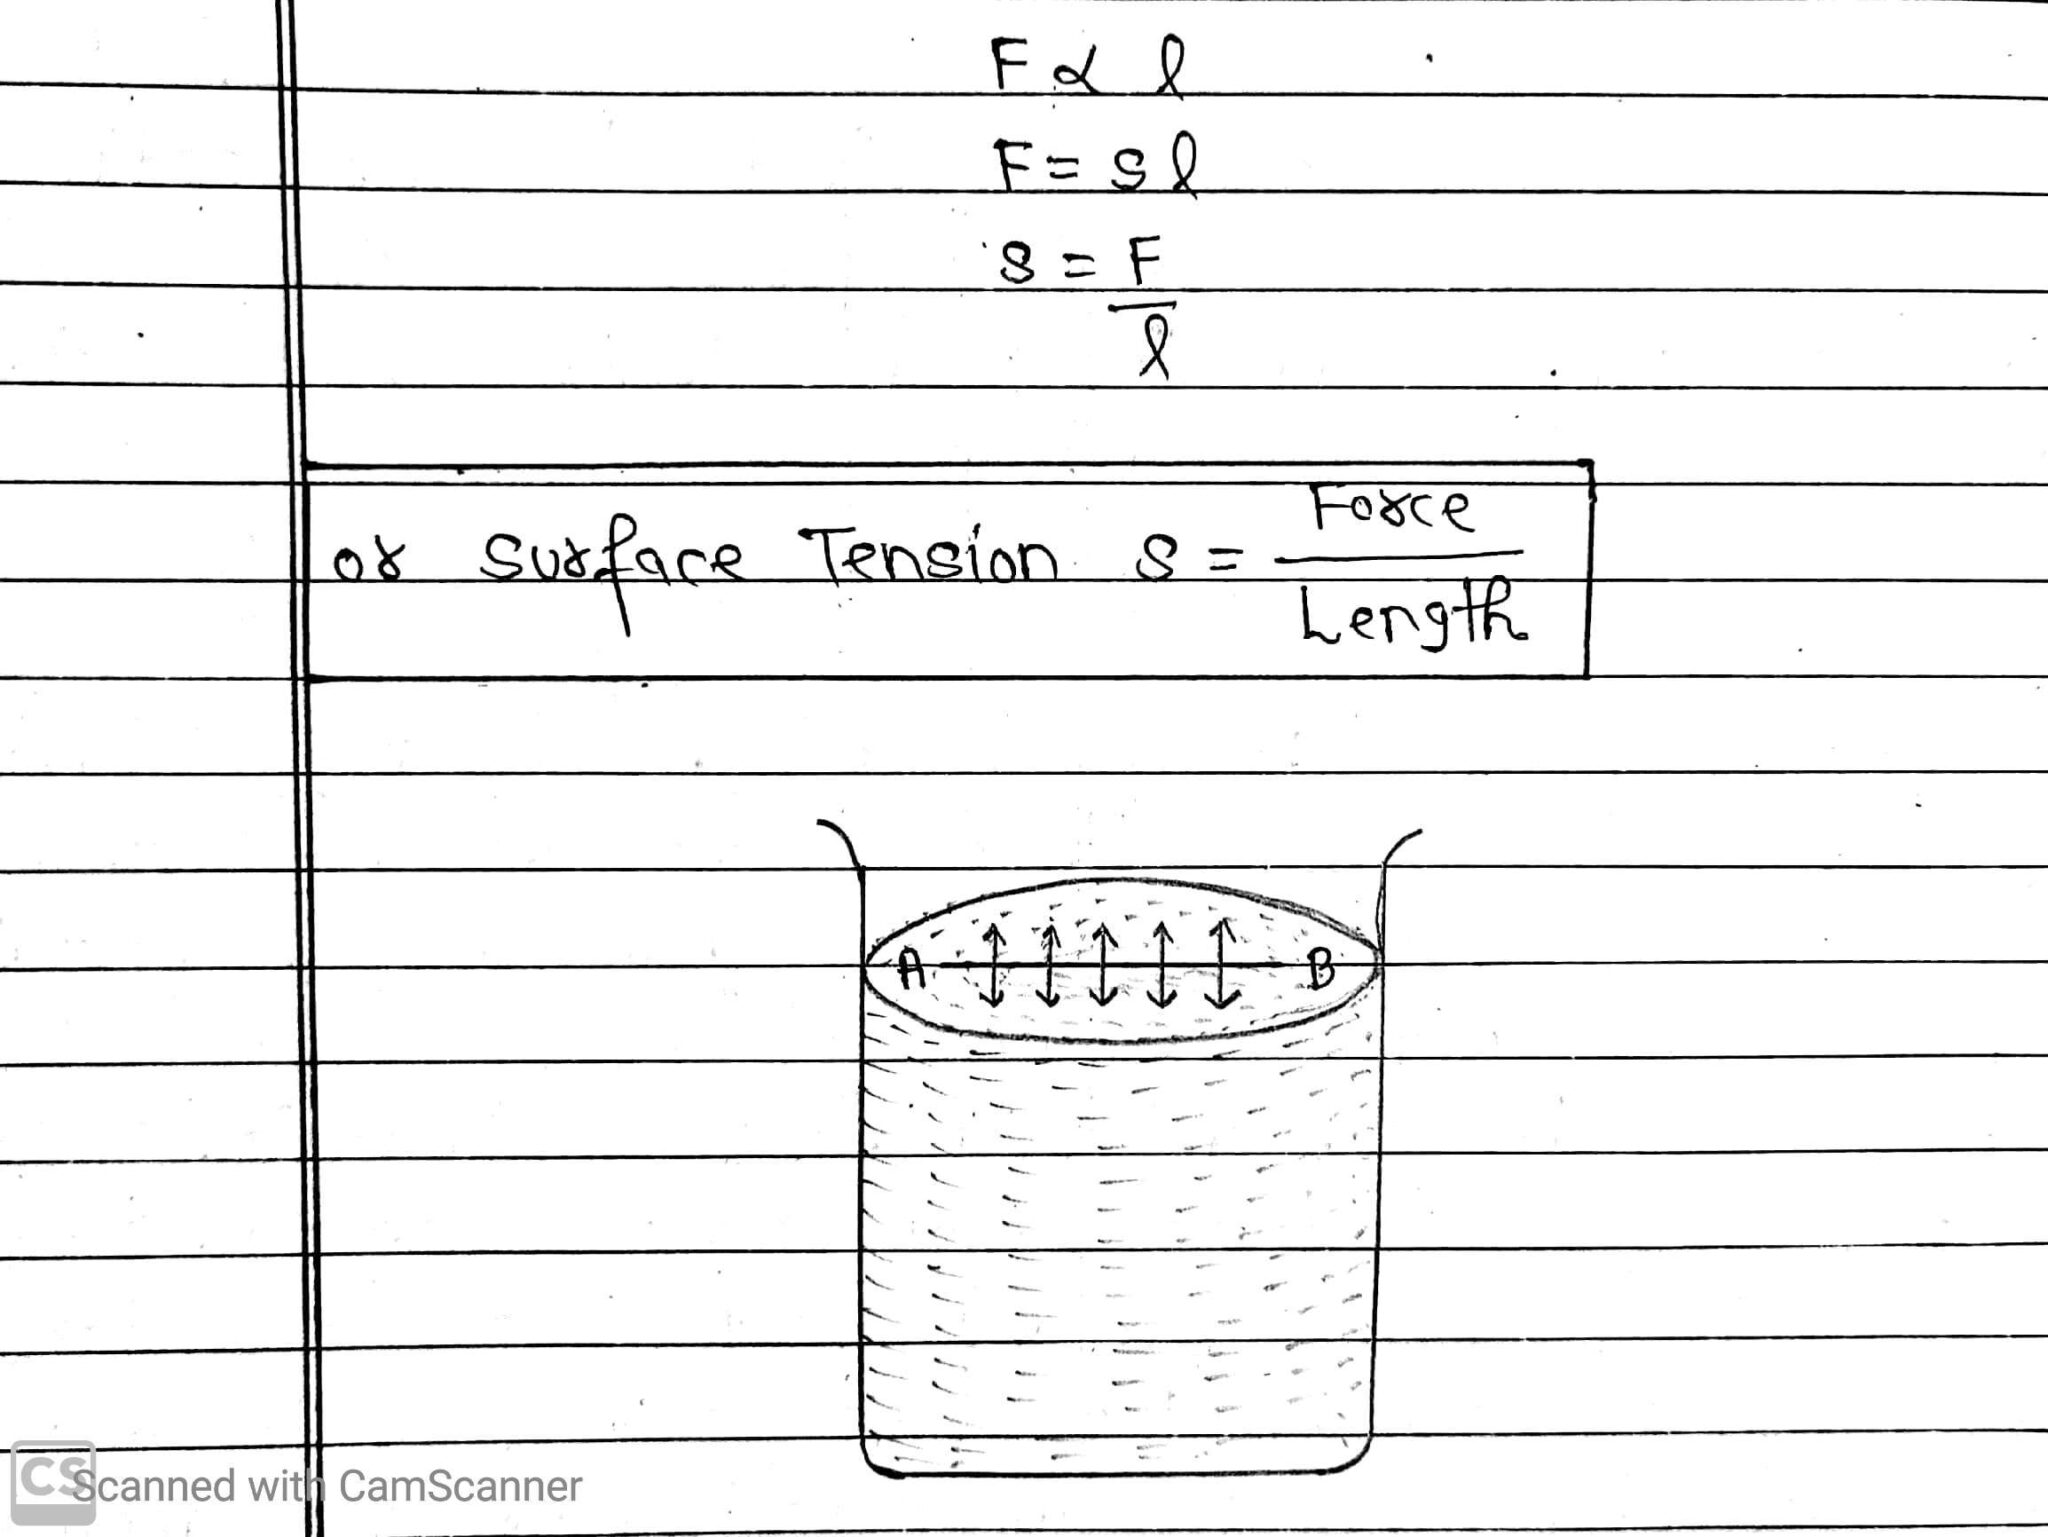 F ∝ l
F = s l
s = F
l
or Surface Tension s = Force
Length
A B
CS Scanned with CamScanner